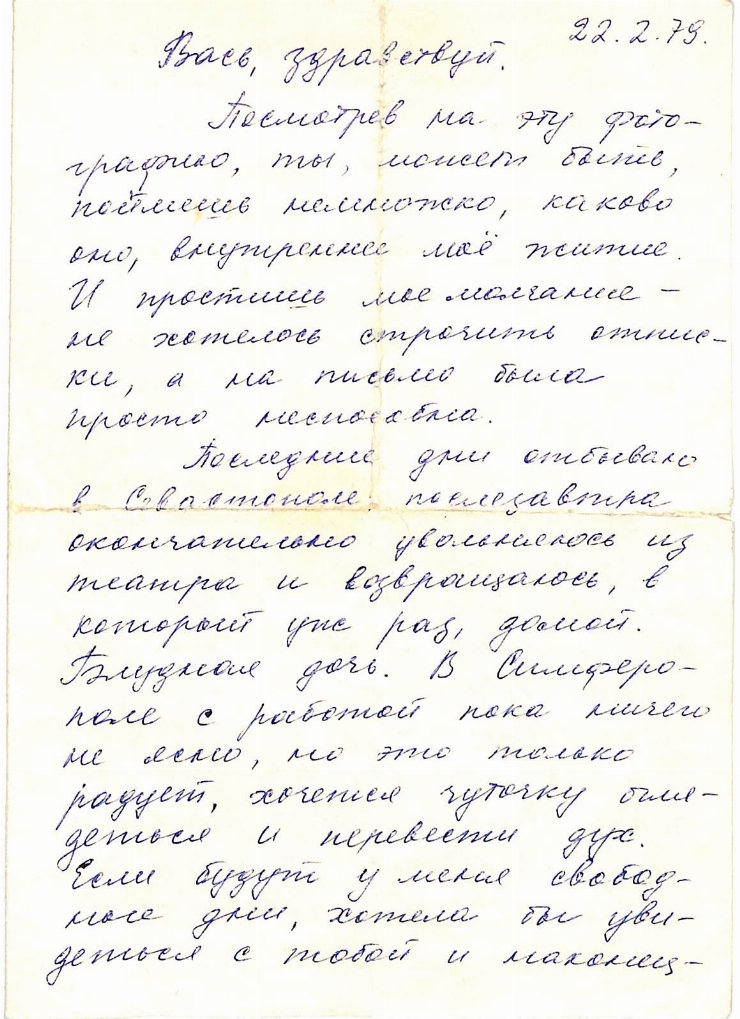 22.2.79.
Вась, здравствуй.
Посмотрев на эту фото-
графию, ты, может быть,
поймешь немножко, каково
оно, внутреннее моё житие.
И простишь мое молчание –
не хотелось строчить отпис-
ки, а на письмо была
просто неспособна.
Последние дни отбываю
в Севастополе, послезавтра
окончательно увольняюсь из
театра и возвращаюсь, в
который уж раз, домой.
Блудная дочь. В Симферо-
поле с работой пока ничего
не ясно, но это только
радует, хочется чуточку огля-
деться и перевести дух.
Если будут у меня свобод-
ные дни, хотела бы уви-
деться с тобой и наконец-